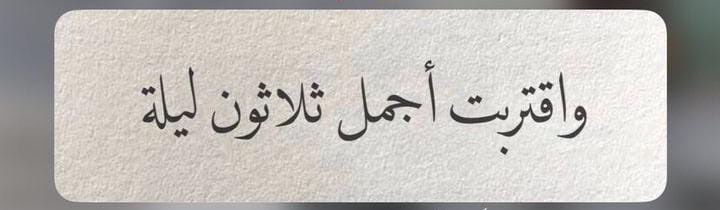 واقتربت أجمل ثلاثون ليلة